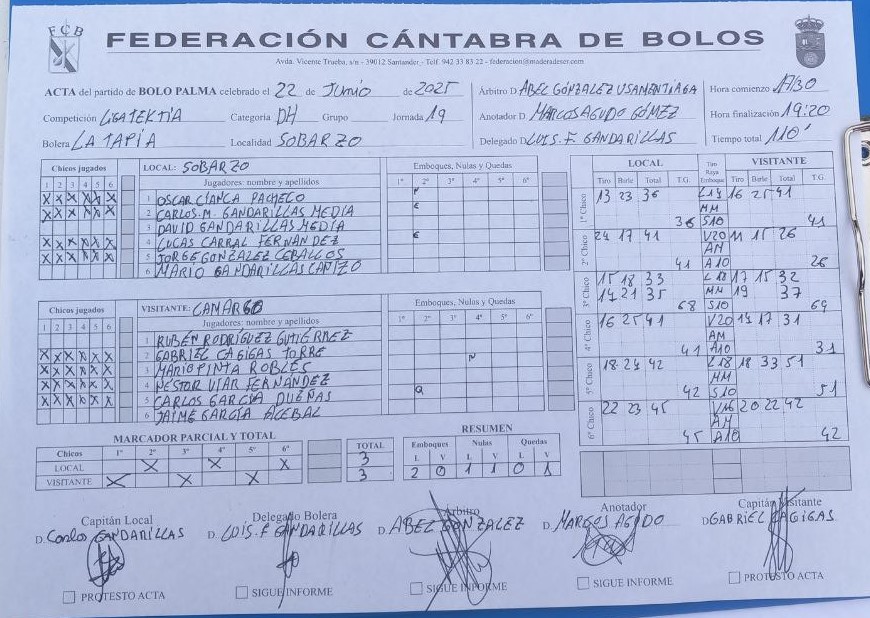 FCB
FEDERACIÓN CÁNTABRA DE BOLOS
Avda. Vicente Trueba, s/n - 39012 Santander - Telf. 942 33 83 22 - federacion@maderadeser.com
ACTA del partido de BOLO PALMA celebrado el 22 de Junio de 2025
Competición LIGA TEKTÍA Categoría DH Grupo Jornada 19
Bolera LA TAPÍA Localidad SOBARZO
Árbitro D. ABEL GÓNZALEZ USAMENTIAGA
Anotador D. MARCOS AGUDO GÓMEZ
Delegado D. LUIS. F. GANDARILLAS
Hora comienzo 17/30
Hora finalización 19:20
Tiempo total 110'
Chicos jugados LOCAL: SOBARZO Emboques, Nulas y Quedas
1 2 3 4 5 6 Jugadores: nombre y apellidos 1º 2º 3º 4º 5º 6º
X X X X X X 1 OSCAR CIANCA PACHECO
X X X X X X 2 CARLOS. M. GANDARILLAS MEDIA E
3 DAVID GANDARILLAS MEDIA
X X X X X X 4 LUCAS CARRAL FERNÁNDEZ E
X X X X X X 5 JORGE GONZALEZ CEBALLOS
6 MARIO GANDARILLAS
Chicos jugados VISITANTE: CAMARGO Emboques, Nulos y Quedas
1 2 3 4 5 6 Jugadores: nombre y apellidos 1º 2º 3º 4º 5º 6º
1 RUBÉN RODRÍGUEZ GUTIÉRREZ
X X X X X X 2 GABRIEL CAGIGAS TORRE N
X X X X X X 3 MARIO PINTA ROBLES
X X X X X X 4 NÉSTOR VIAR FERNÁNDEZ
X X X X X X 5 CARLOS GARCÍA DUEÑAS Q
6 JAIME GARCÍA ACEBAL
LOCAL VISITANTE
Tiro Birle Total T.G. Tiro Raya Emboque Tiro Birle Total T.G.
1º Chico 13 23 36 L19 16 25 41
MM
36 S10 41
2º Chico 24 17 41 V20 11 15 26
AM
41 A10 26
3º Chico 15 18 33 L18 17 15 32
14 21 35 MM 19 37
68 S10 69
4º Chico 16 25 41 V20 14 17 31
AM
41 A10 31
5º Chico 18 24 42 L18 18 33 51
MM
42 S10 51
6º Chico 22 23 45 V16 20 22 42
AM
45 A10 42
MARCADOR PARCIAL Y TOTAL
Chicos 1º 2º 3º 4º 5º 6º TOTAL
LOCAL X X X 3
VISITANTE X X X 3
RESUMEN
Emboques Nulas Quedas
L V L V L V
2 0 1 1 0 1
Capitán Local
D. Carlos GANDARILLAS
PROTESTO ACTA
Delegado Bolera
D. LUIS. F GANDARILLAS
SIGUE INFORME
Árbitro
D. ABEL GONZALEZ
SIGUE INFORME
Anotador
D. MARCOS AGUDO
SIGUE INFORME
Capitán Visitante
D. GABRIEL CAGIGAS
PROTESTO ACTA